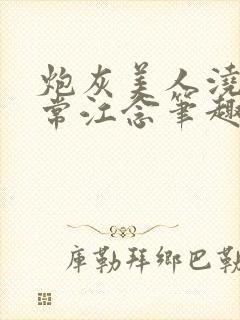 炮灰美人浇
常江念笔趣
库勒拜乡巴勒